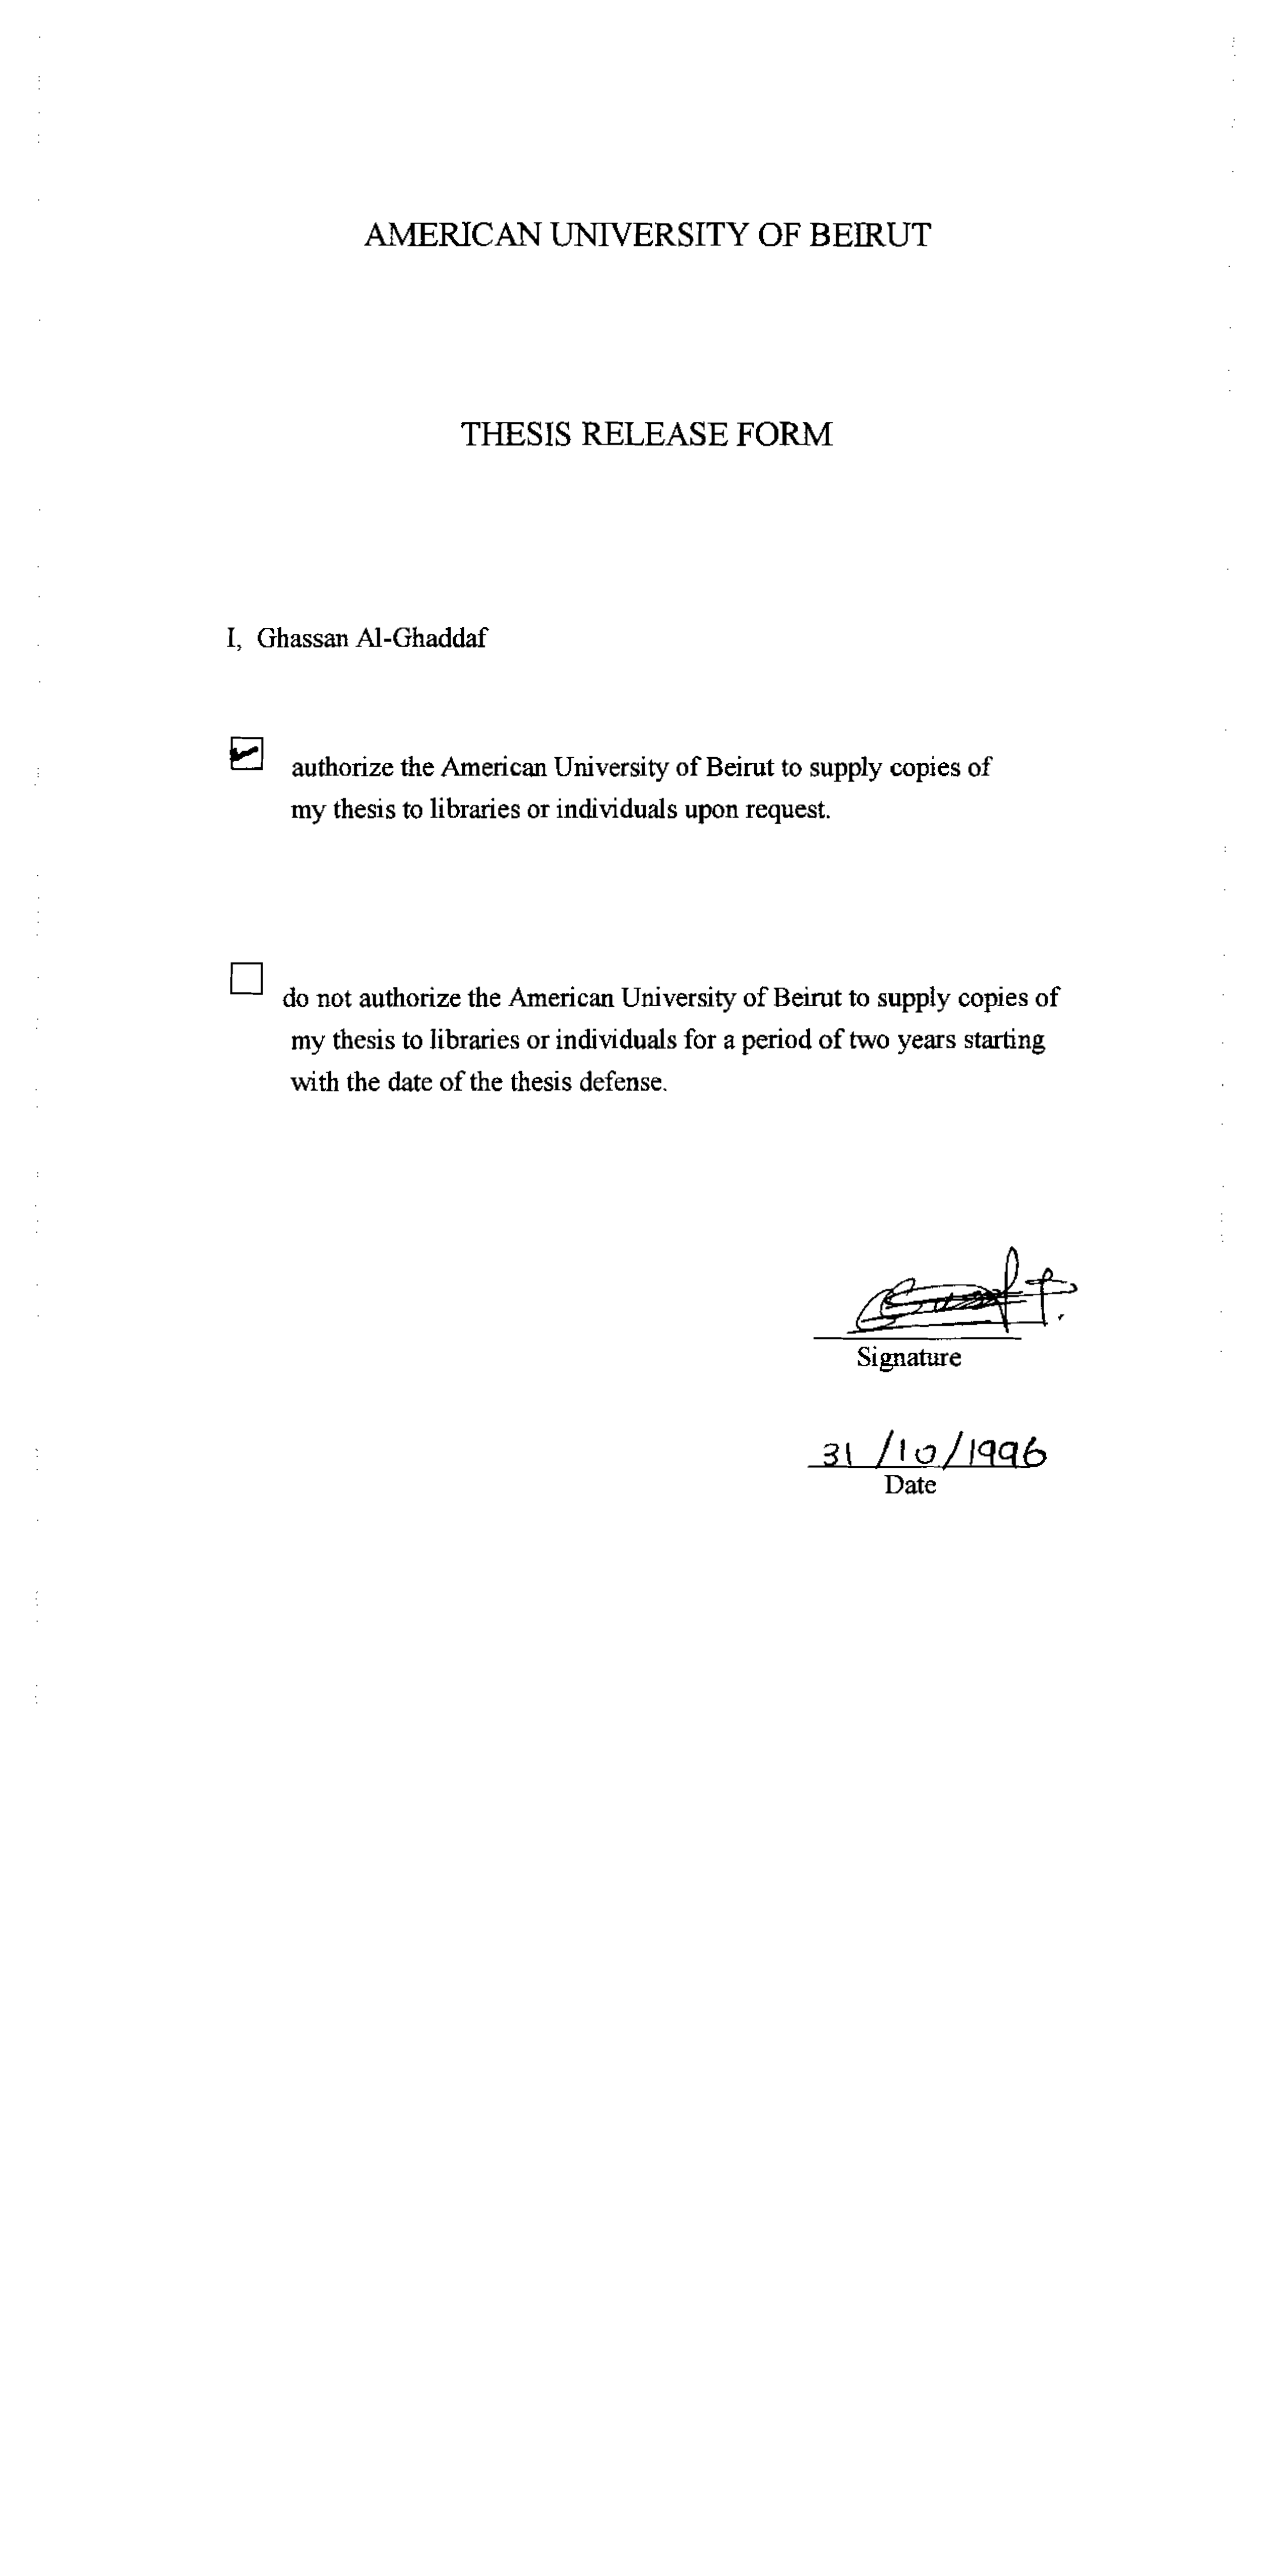 AMERICAN UNIVERSITY OF BEIRUT
THESIS RELEASE FORM
I, Ghassan Al-Ghaddaf
authorize the American University of Beirut to supply copies of
my thesis to libraries or individuals upon request.
do not authorize the American University of Beirut to supply copies of
my thesis to libraries or individuals for a period of two years starting
with the date of the thesis defense.
Signature
31/10/1996
Date